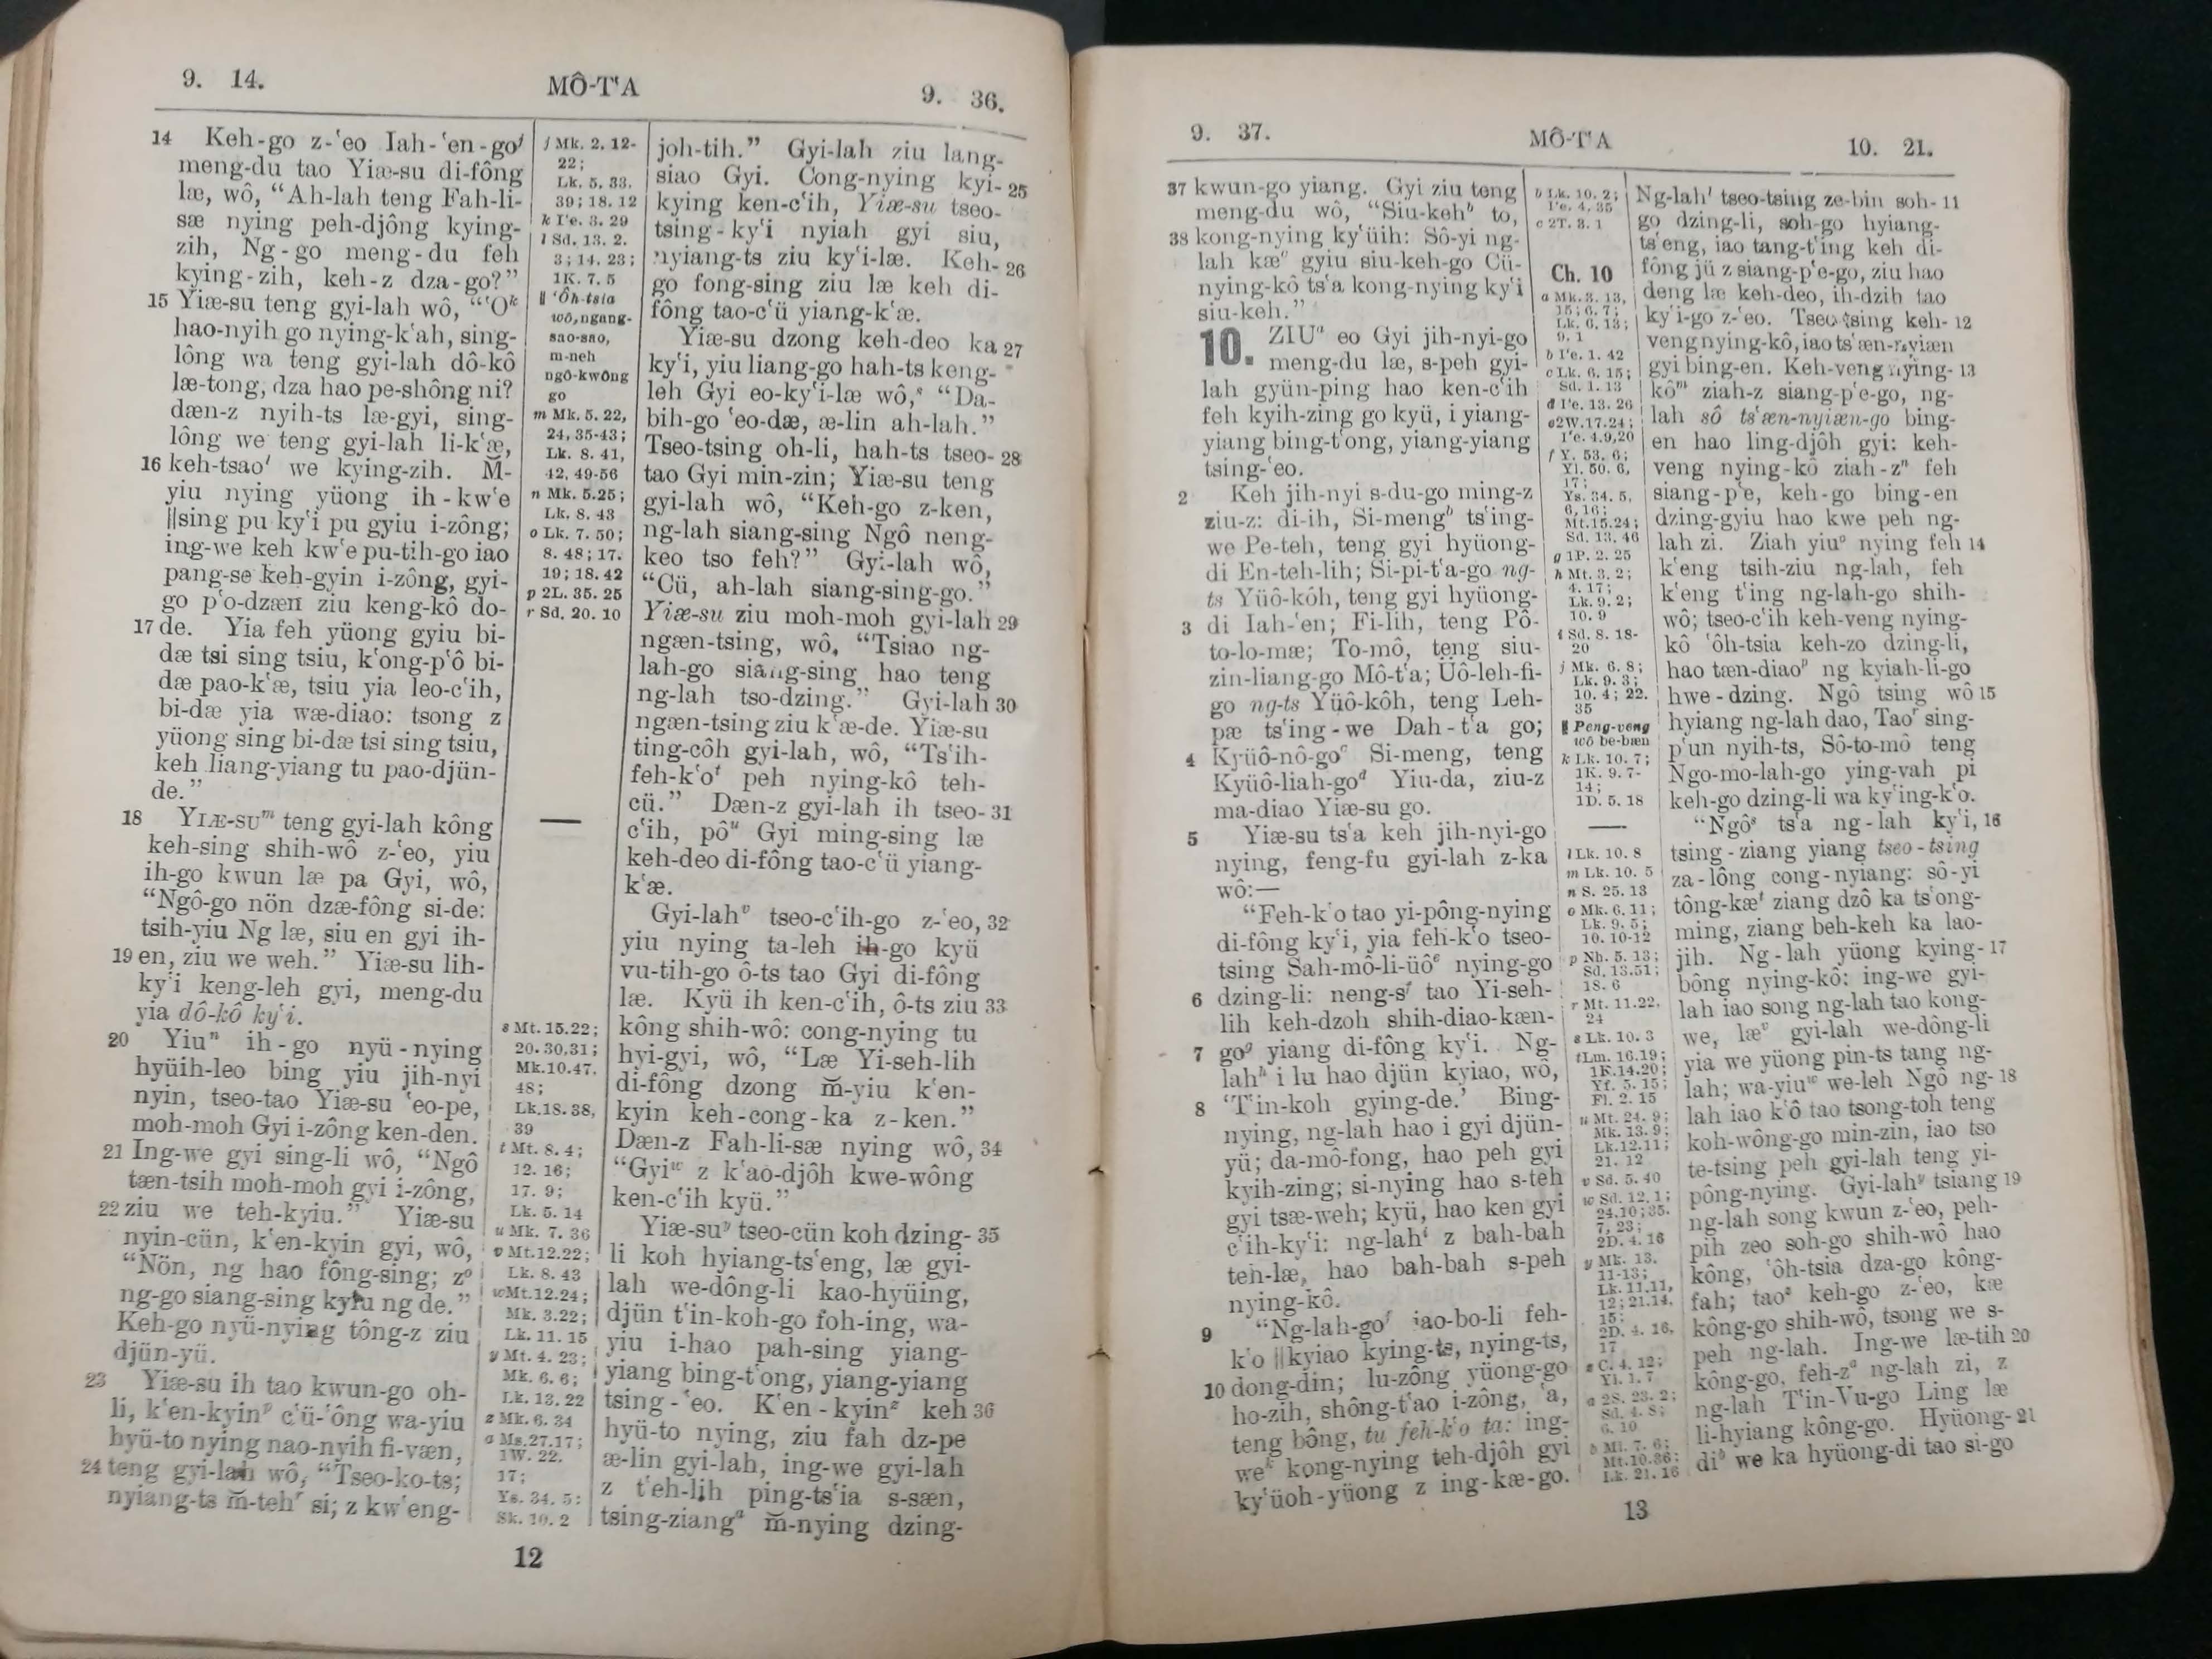 9. 14.
MÔ-TʻA
9. 36.
14 Keh-go z-ʻeo Iah-ʻen-goʲ
meng-du tao Yiæ-su di-fông
læ, wô, “Ah-lah teng Fah-li-
sæ nying peh-djông kying-
zih, Ng-go meng-du feh
kying-zih, keh-z dza-go?”
15 Yiæ-su teng gyi-lah wô, “ʻOᵏ
hao-nyih go nying-kʻah, sing-
lông wa teng gyi-lah dô-kô
læ-tong, dza hao pe-shông ni?
dæn-z nyih-ts læ-gyi, sing-
lông we teng gyi-lah li-kʻæ,
16 keh-tsaoˡ we kying-zih. M̆-
yiu nying yüong ih-kwʻe
‖sing pu kyʻi pu gyiu i-zông;
ing-we keh kwʻe pu-tih-go iao
pang-se keh-gyin i-zông, gyi-
go pʻo-dzæn ziu keng-kô do-
17 de. Yia feh yüong gyiu bi-
dæ tsi sing tsiu, kʻong-pʻô bi-
dæ pao-kʻæ, tsiu yia leo-cʻih,
bi-dæ yia wæ-diao: tsong z
yüong sing bi-dæ tsi sing tsiu,
keh liang-yiang tu pao-djün-
de.”
18 YIÆ-SUᵐ teng gyi-lah kông
keh-sing shih-wô z-ʻeo, yiu
ih-go kwun læ pa Gyi, wô,
“Ngô-go nön dzæ-fông si-de:
tsih-yiu Ng læ, siu en gyi ih-
19 en, ziu we weh.” Yiæ-su lih-
kyʻi keng-leh gyi, meng-du
yia dô-kô kyʻi.
20 Yiuⁿ ih-go nyü-nying
hyüih-leo bing yiu jih-nyi
nyin, tseo-tao Yiæ-su ʻeo-pe,
moh-moh Gyi i-zông ken-den.
21 Ing-we gyi sing-li wô, “Ngô
tæn-tsih moh-moh gyi i-zông,
22 ziu we teh-kyiu.” Yiæ-su
nyin-cün, kʻen-kyin gyi, wô,
“Nön, ng hao fông-sing; zᵒ
ng-go siang-sing kyiu ng de.”
Keh-go nyü-nying tông-z ziu
djün-yü.
23 Yiæ-su ih tao kwun-go oh-
li, kʻen-kyinᵖ cʻü-ʻông wa-yiu
hyü-to nying nao-nyih fi-væn,
24 teng gyi-lah wô, “Tseo-ko-ts;
nyiang-ts m̆-tehʳ si; z kwʻeng-
j Mk. 2. 12-
22;
Lk. 5. 33.
39; 18. 12
k Iʻe. 3. 29
l Sd. 13. 2.
3; 14. 23;
1K. 7. 5
‖ ʻÔh-tsia
wô, ngang-
sao-sao,
m-neh
ngô-kwông
go
m Mk. 5. 22,
24, 35-43;
Lk. 8. 41,
42, 49-56
n Mk. 5.25;
Lk. 8. 43
o Lk. 7. 50;
8. 48; 17.
19; 18. 42
p 2L. 35. 25
r Sd. 20. 10
s Mt. 15.22;
20. 30,31;
Mk.10.47,
48;
Lk.18.38,
39
t Mt. 8. 4;
12. 16;
17. 9;
Lk. 5. 14
u Mk. 7. 36
v Mt.12.22;
Lk. 8. 43
w Mt.12.24;
Mk. 3.22;
Lk. 11. 15
y Mt. 4. 23;
Mk. 6. 6;
Lk. 13. 22
z Mk. 6. 34
a Ms.27.17;
1W. 22.
17;
Ys. 34. 5:
Sk. 10. 2
joh-tih.” Gyi-lah ziu lang-
siao Gyi. Cong-nying kyi- 25
kying ken-cʻih, Yiæ-su tseo-
tsing-kyʻi nyiah gyi siu,
nyiang-ts ziu kyʻi-læ. Keh- 26
go fong-sing ziu læ keh di-
fông tao-cʻü yiang-kʻæ.
Yiæ-su dzong keh-deo ka 27
kyʻi, yiu liang-go hah-ts keng-
leh Gyi eo-kyʻi-læ wô,ˢ “Da-
bih-go ʻeo-dæ, æ-lin ah-lah.”
Tseo-tsing oh-li, hah-ts tseo- 28
tao Gyi min-zin; Yiæ-su teng
gyi-lah wô, “Keh-go z-ken,
ng-lah siang-sing Ngô neng-
keo tso feh?” Gyi-lah wô,
“Cü, ah-lah siang-sing-go.”
Yiæ-su ziu moh-moh gyi-lah 29
ngæn-tsing, wô, “Tsiao ng-
lah-go siang-sing hao teng
ng-lah tso-dzing.” Gyi-lah 30
ngæn-tsing ziu kʻæ-de. Yiæ-su
ting-côh gyi-lah, wô, “Tsʻih-
feh-kʻoᵗ peh nying-kô teh-
cü.” Dæn-z gyi-lah ih tseo- 31
cʻih, pôᵘ Gyi ming-sing læ
keh-deo di-fông tao-cʻü yiang-
kʻæ.
Gyi-lahᵛ tseo-cʻih-go z-ʻeo, 32
yiu nying ta-leh ih-go kyü
vu-tih-go ô-ts tao Gyi di-fông
læ. Kyü ih ken-cʻih, ô-ts ziu 33
kông shih-wô: cong-nying tu
hyi-gyi, wô, “Læ Yi-seh-lih
di-fông dzong m̆-yiu kʻen-
kyin keh-cong-ka z-ken.”
Dæn-z Fah-li-sæ nying wô, 34
“Gyiʷ z kʻao-djôh kwe-wông
ken-cʻih kyü.”
Yiæ-suʸ tseo-cün koh dzing- 35
li koh hyiang-tsʻeng, læ gyi-
lah we-dông-li kao-hyüing,
djün tʻin-koh-go foh-ing, wa-
yiu i-hao pah-sing yiang-
yiang bing-tʻong, yiang-yiang
tsing-ʻeo. Kʻen-kyinᶻ keh 36
hyü-to nying, ziu fah dz-pe
æ-lin gyi-lah, ing-we gyi-lah
z tʻeh-lih ping-tsʻia s-sæn,
tsing-ziangᵃ m̆-nying dzing-
12
9. 37.
MÔ-TʻA
10. 21.
37 kwun-go yiang. Gyi ziu teng
meng-du wô, “Siu-kehᵇ to,
38 kong-nying kyʻüih: Sô-yi ng-
lah kæᶜ gyiu siu-keh-go Cü-
nying-kô tsʻa kong-nying kyʻi
siu-keh.”
10. ZIUᵃ eo Gyi jih-nyi-go
meng-du læ, s-peh gyi-
lah gyün-ping hao ken-cʻih
feh kyih-zing go kyü, i yiang-
yiang bing-tʻong, yiang-yiang
tsing-ʻeo.
2 Keh jih-nyi s-du-go ming-z
ziu-z: di-ih, Si-mengᵇ tsʻing-
we Pe-teh, teng gyi hyüong-
di En-teh-lih; Si-pi-tʻa-go ng-
ts Yüô-kôh, teng gyi hyüong-
3 di Iah-ʻen; Fi-lih, teng Pô-
to-lo-mæ; To-mô, teng siu-
zin-liang-go Mô-tʻa; Üô-leh-fi-
go ng-ts Yüô-kôh, teng Leh-
pæ tsʻing-we Dah-tʻa go;
4 Kyüô-nô-goᶜ Si-meng, teng
Kyüô-liah-goᵈ Yiu-da, ziu-z
ma-diao Yiæ-su go.
5 Yiæ-su tsʻa keh jih-nyi-go
nying, feng-fu gyi-lah z-ka
wô:—
“Feh-kʻo tao yi-pông-nying
di-fông kyʻi, yia feh-kʻo tseo-
tsing Sah-mô-li-üôᵉ nying-go
6 dzing-li: neng-sᶠ tao Yi-seh-
lih keh-dzoh shih-diao-kæn-
7 goᵍ yiang di-fông kyʻi. Ng-
lahʰ i lu hao djün kyiao, wô,
8 ‘Tʻin-koh gying-de.’ Bing-
nying, ng-lah hao i gyi djün-
yü; da-mô-fong, hao peh gyi
kyih-zing; si-nying hao s-teh
gyi tsæ-weh; kyü, hao ken gyi
cʻih-kyʻi: ng-lahⁱ z bah-bah
teh-læ, hao bah-bah s-peh
nying-kô.
9 “Ng-lah-goʲ iao-bo-li feh-
kʻo ‖kyiao kying-ts, nying-ts,
10 dong-din; lu-zông yüong-go
ho-zih, shông-tʻao i-zông, ʻa,
teng bông, tu feh-kʻo ta: ing-
weᵏ kong-nying teh-djôh gyi
kyʻüoh-yüong z ing-kæ-go.
b Lk. 10. 2;
Iʻe. 4. 35
c 2T. 3. 1
Ch. 10
a Mk. 3. 13,
15; 6. 7;
Lk. 6. 13;
9. 1
b Iʻe. 1. 42
c Lk. 6. 15;
Sd. 1. 13
d Iʻe. 13. 26
e 2W.17.24;
Iʻe. 4.9,20
f Y. 53. 6;
Yl. 50. 6,
17;
Ys. 34. 5,
6,16;
Mt.15.24;
Sd. 13. 46
g 1P. 2. 25
h Mt. 3. 2;
4. 17;
Lk. 9. 2;
10. 9
i Sd. 8. 18-
20
j Mk. 6. 8;
Lk. 9. 3;
10. 4; 22.
35
‖ Peng-veng
wô be-bæn
k Lk. 10. 7;
1K. 9. 7-
14;
1D. 5. 18
l Lk. 10. 8
m Lk. 10. 5
n S. 25. 13
o Mk. 6. 11;
Lk. 9. 5;
10. 10-12
p Nh. 5. 13;
Sd. 13.51;
18. 6
r Mt. 11.22,
24
s Lk. 10. 3
t Lm. 16.19;
1K.14.20;
Yf. 5. 15;
Fl. 2. 15
u Mt. 24. 9;
Mk. 13. 9;
Lk.12.11;
21. 12
v Sd. 5. 40
w Sd. 12. 1;
24.10;35.
7, 23;
2D. 4. 16
y Mk. 13.
11-13;
Lk. 11.11,
12; 21.14,
15;
2D. 4. 16,
17
z C. 4. 12;
Yi. 1. 7
a 2S. 23. 2;
Sd. 4. 8;
6. 10
b Mi. 7. 6;
Mt.10.36;
Lk. 21. 16
Ng-lahˡ tseo-tsing ze-bin soh- 11
go dzing-li, soh-go hyiang-
tsʻeng, iao tang-tʻing keh di-
fông jü z siang-pʻe-go, ziu hao
deng læ keh-deo, ih-dzih tao
kyʻi-go z-ʻeo. Tseo-tsing keh- 12
veng nying-kô, iao tsʻæn-nyiæn
gyi bing-en. Keh-veng nying- 13
kôᵐ ziah-z siang-pʻe-go, ng-
lah sô tsʻæn-nyiæn-go bing-
en hao ling-djôh gyi: keh-
veng nying-kô ziah-zⁿ feh
siang-pʻe, keh-go bing-en
dzing-gyiu hao kwe peh ng-
lah zi. Ziah yiuᵒ nying feh 14
kʻeng tsih-ziu ng-lah, feh
kʻeng tʻing ng-lah-go shih-
wô; tseo-cʻih keh-veng nying-
kô ʻôh-tsia keh-zo dzing-li,
hao tæn-diaoᵖ ng kyiah-li-go
hwe-dzing. Ngô tsing wô 15
hyiang ng-lah dao, Taoʳ sing-
pʻun nyih-ts, Sô-to-mô teng
Ngo-mo-lah-go ying-vah pi
keh-go dzing-li wa kyʻing-kʻo.
“Ngôˢ tsʻa ng-lah kyʻi, 16
tsing-ziang yiang tseo-tsing
za-lông cong-nyiang: sô-yi
tông-kæᵗ ziang dzô ka tsʻong-
ming, ziang beh-keh ka lao-
jih. Ng-lah yüong kying- 17
bông nying-kô: ing-we gyi-
lah iao song ng-lah tao kong-
we, læᵛ gyi-lah we-dông-li
yia we yüong pin-ts tang ng-
lah; wa-yiuʷ we-leh Ngô ng- 18
lah iao kʻô tao tsong-toh teng
koh-wông-go min-zin, iao tso
te-tsing peh gyi-lah teng yi-
pông-nying. Gyi-lahʸ tsiang 19
ng-lah song kwun z-ʻeo, peh-
pih zeo soh-go shih-wô hao
kông, ʻôh-tsia dza-go kông-
fah; taoᶻ keh-go z-ʻeo, kæ
kông-go shih-wô, tsong we s-
peh ng-lah. Ing-we læ-tih 20
kông-go, feh-zᵃ ng-lah zi, z
ng-lah Tʻin-Vu-go Ling læ
li-hyiang kông-go. Hyüong- 21
diᵇ we ka hyüong-di tao si-go
13